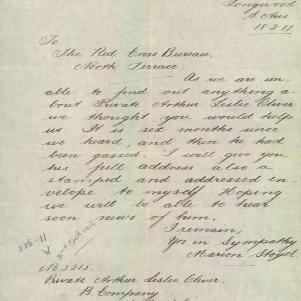 Longwood
S. Aus.
18-2-17
To
The Red Cross Bureau,
North Terrace
As we are un-
able to find out anything a
bout Private Arthur Leslie Oliver
we thought you would help
us. It is six months since
we heard, and then he had
been gassed. I will give you
his full address also a
stamped and addressed en
velope to myself Hoping
we will be able to hear
soon news of him.
I remain,
Yrs in Sympathy
Marion
No. 3215.
Private Arthur Leslie Oliver.
B. Company